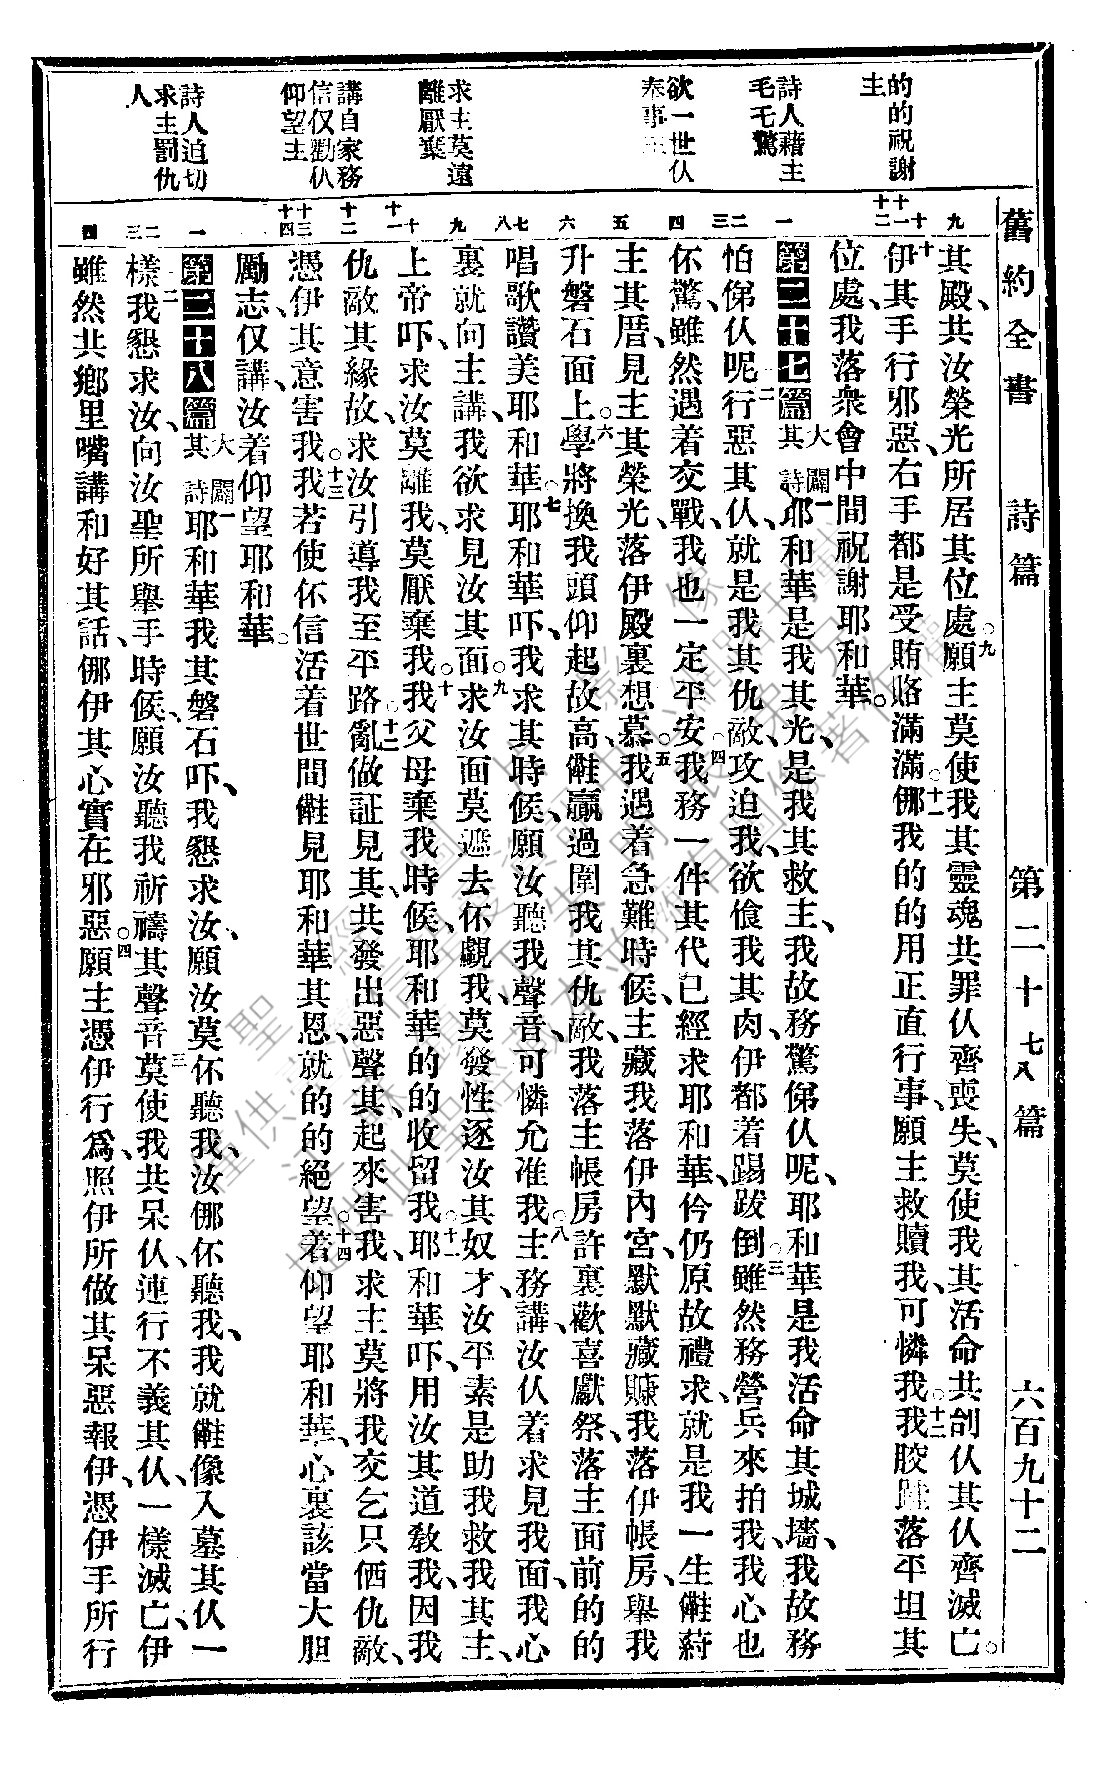 舊約全書 詩篇 第二十七八篇 六百九十二
的的祝謝
主
詩人藉主
毛乇驚
欲一世仈
奉事主
求主莫遠
離厭棄
講自家務
信仅勸仈
仰望主
詩人迫切
求主罰仇
人
九
十
十一
十二
一
二
三
四
五
六
七
八
九
十
十一
十二
十三
十四
一
二
三
四
其殿、共汝榮光所居其位處。九願主莫使我其靈魂共罪仈齊喪失、莫使我其活命共刣仈其仈齊滅亡。
十伊其手行邪惡、右手都是受賄賂滿滿。十一㑚我的的用正直行事、願主救贖我、可憐我。十二我骹跬落平坦其
位處、我落衆會中間祝謝耶和華。
第二十七篇 大闢其一詩 耶和華是我其光、是我其救主、我故務驚俤仈呢、耶和華是我活命其城墻、我故務
怕俤仈呢。二行惡其仈、就是我其仇敵、攻迫我、欲飧我其肉、伊都着踢跋倒。三雖然務營兵來拍我、我心也
伓驚、雖然遇着交戰、我也一定平安。四我務一件其代已經求耶和華、仱仍原故禮求、就是我一生㑅蒔
主其厝、見主其榮光、落伊殿裏想慕。五我遇着急難時候、主藏我落伊內宮、默默藏賺我落伊帳房、舉我
升磐石面上。六學將換我頭仰起故高、㑅贏過圍我其仇敵、我落主帳房許裏歡喜獻祭、落主面前的的
唱歌讚美耶和華。七耶和華吓、我求其時候、願汝聽我聲音、可憐允准我。八主務講、汝仈着求見我面、我心
裏就向主講、我欲求見汝其面。九求汝面莫遮去伓覷我、莫發性逐汝其奴才、汝平素是助我救我其主、
上帝吓、求汝莫離我、莫厭棄我。十我父母棄我時候、耶和華的的收留我。十一耶和華吓、用汝其道教我、因我
仇敵其緣故、求汝引導我至平路。十二亂做証見其、共發出惡聲其、起來害我、求主莫將我交乞只㑚仇敵、
憑伊其意害我。十三我若使伓信活着世間㑅見耶和華其恩、就的的絕望。十四着仰望耶和華、心裏該當大胆
勵志、仅講、汝着仰望耶和華。
第二十八篇 大闢其一詩 耶和華我其磐石吓、我懇求汝、願汝莫伓聽我、汝㑚伓聽我、我就㑅像入墓其仈一
樣。二我懇求汝、向汝聖所舉手時候、願汝聽我祈禱其聲音。三莫使我共呆仈、連行不義其仈、一樣滅亡、伊
雖然共鄉里嘴講和好其話、㑚伊其心實在邪惡。四願主憑伊行爲、照伊所做其呆惡報伊、憑伊手所行